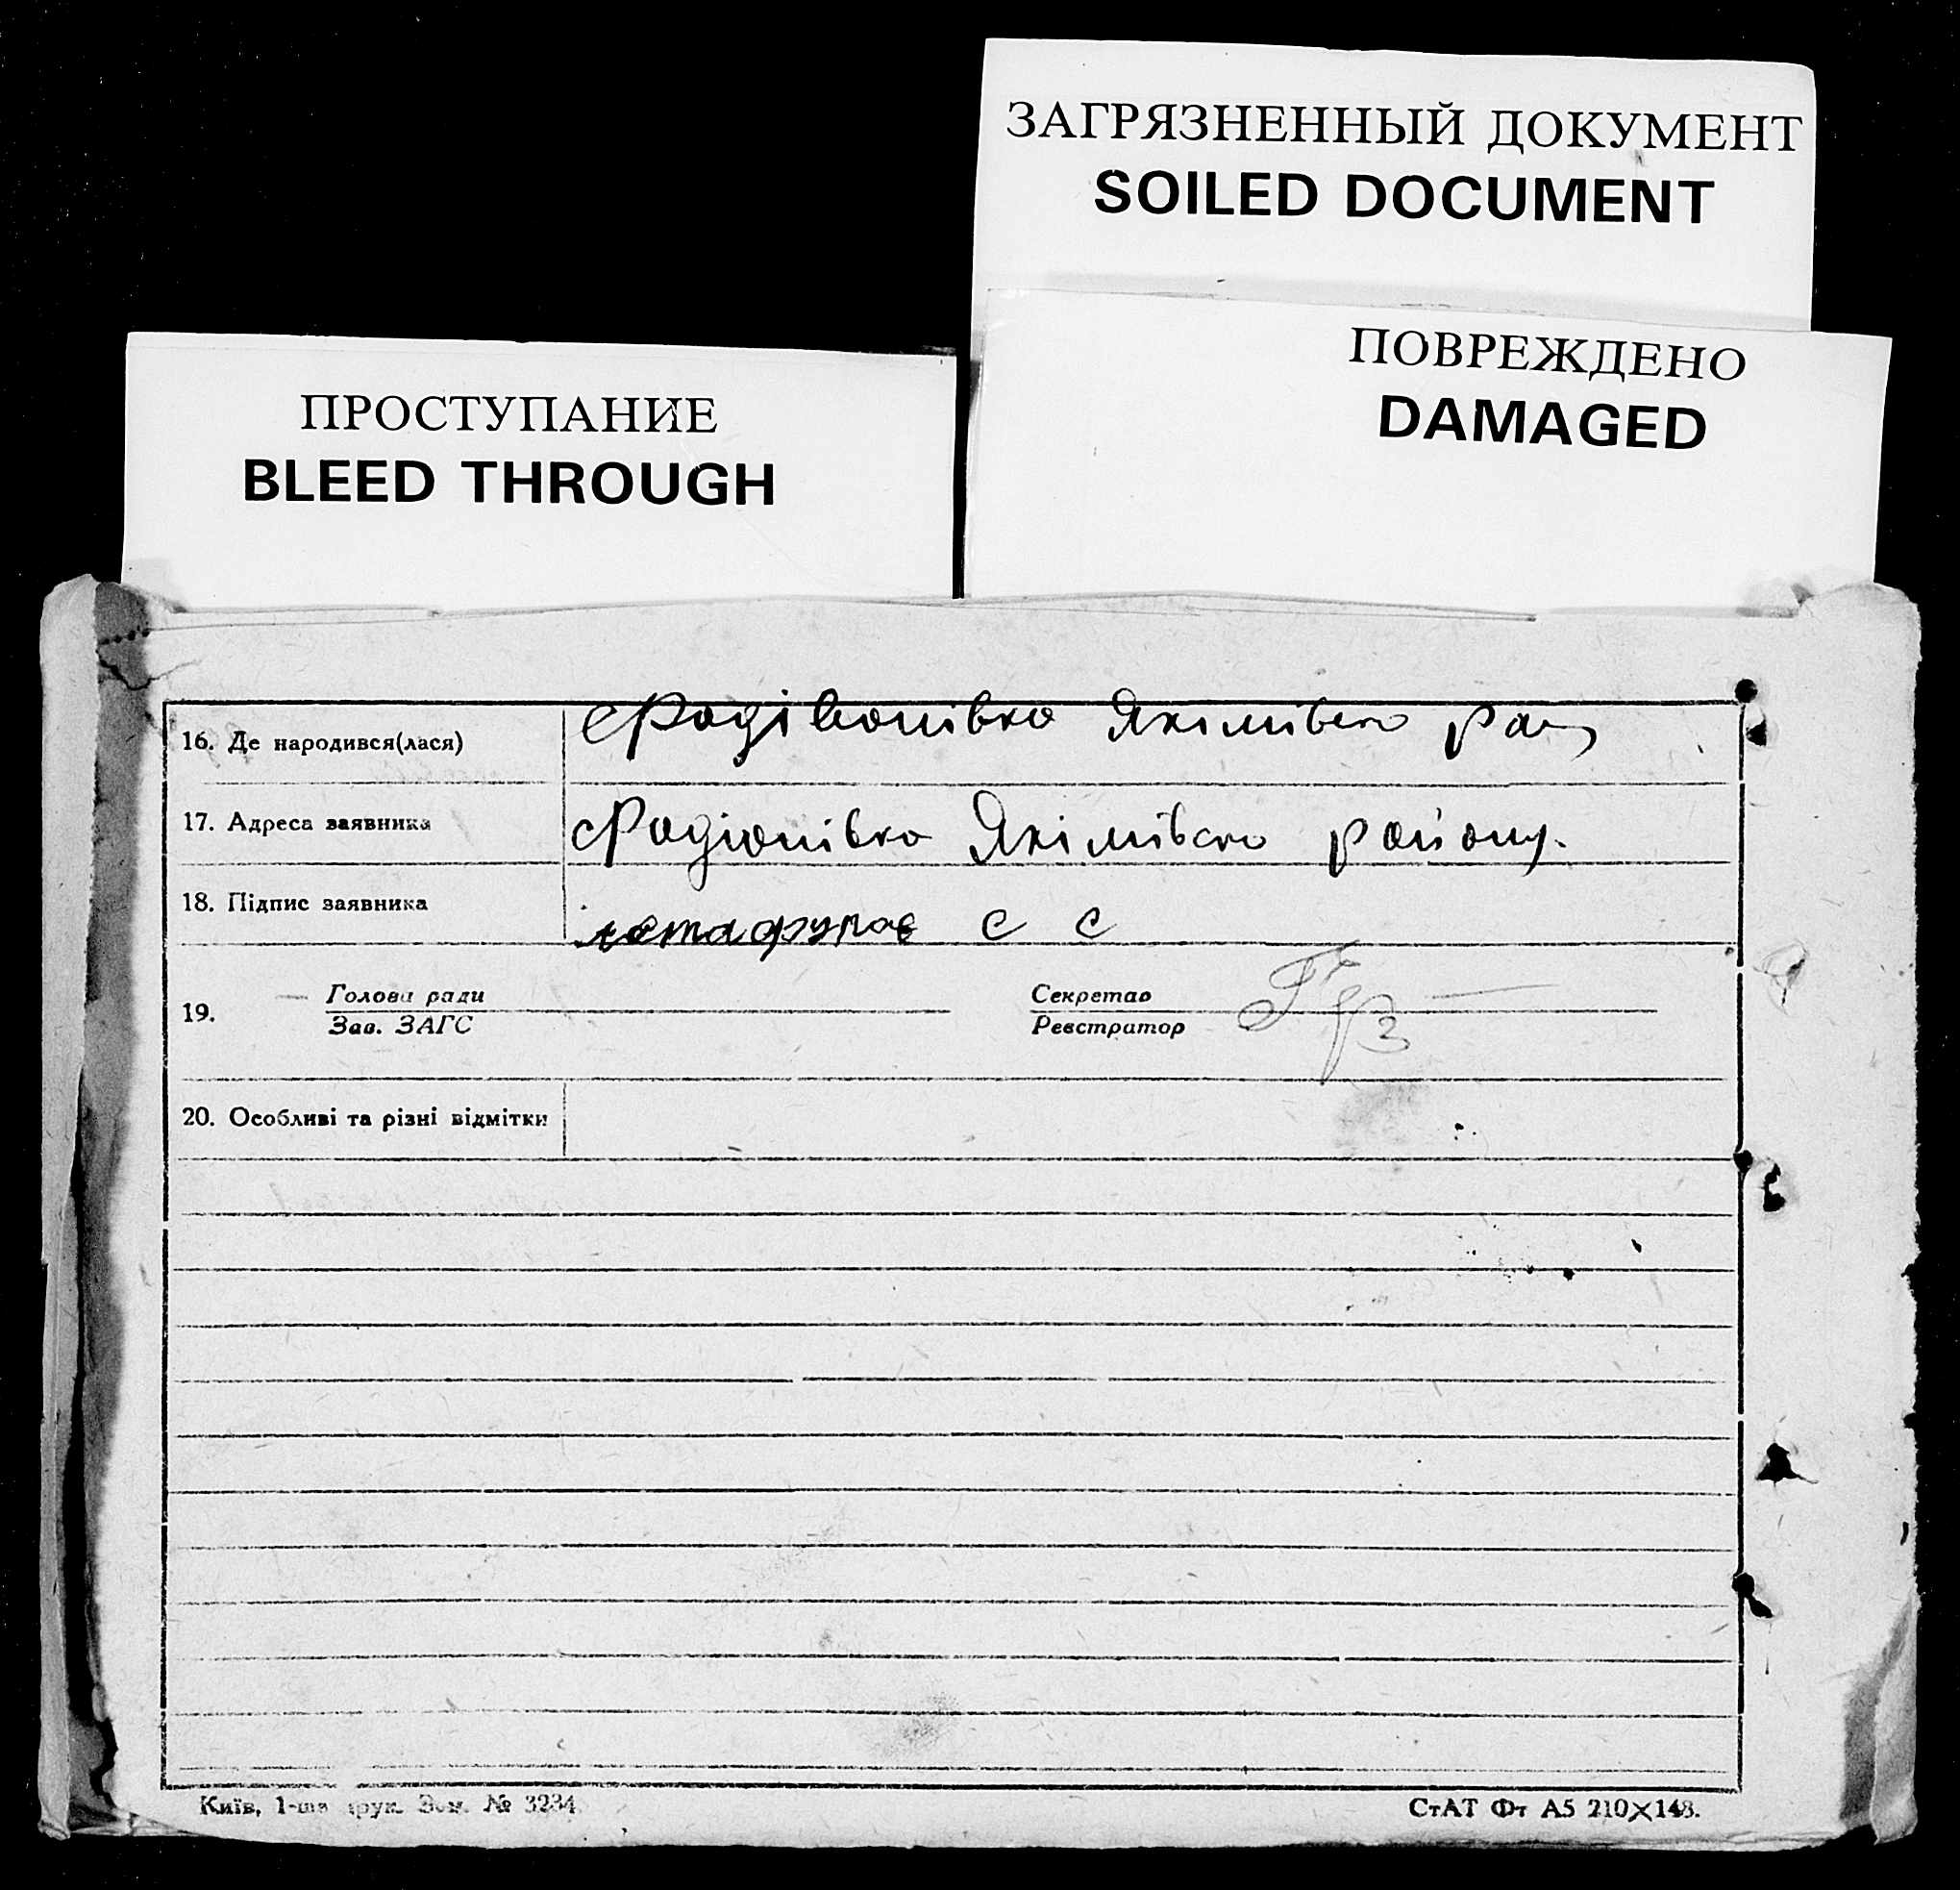 ЗАГРЯЗНЕННЫЙ ДОКУМЕНТ
SOILED DOCUMENT
ПОВРЕЖДЕНО
DAMAGED
ПРОСТУПАНИЕ
BLEED THROUGH
16. Де народився(лася) Якімівсько
17. Адреса заявника Радіонівка Якімівско району.
18. Підпис заявника С С
19. Голова ради Секретар
Зав. ЗАГС Реєстратор
20. Особливі та різні відмітки
Київ, 1-ша друк. Зам. № 3234
СтАТ Фт А5 210×148.